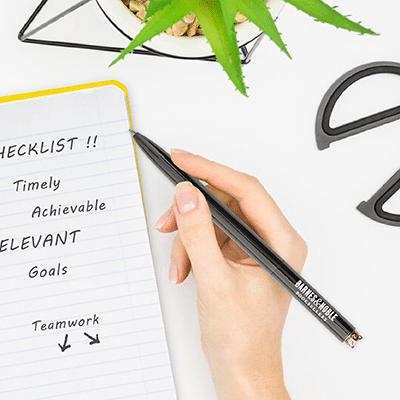 HECKLIST !!
Timely
Achievable
ELEVANT
Goals
Teamwork
BARNES&NOBLE
BOOKSELLERS